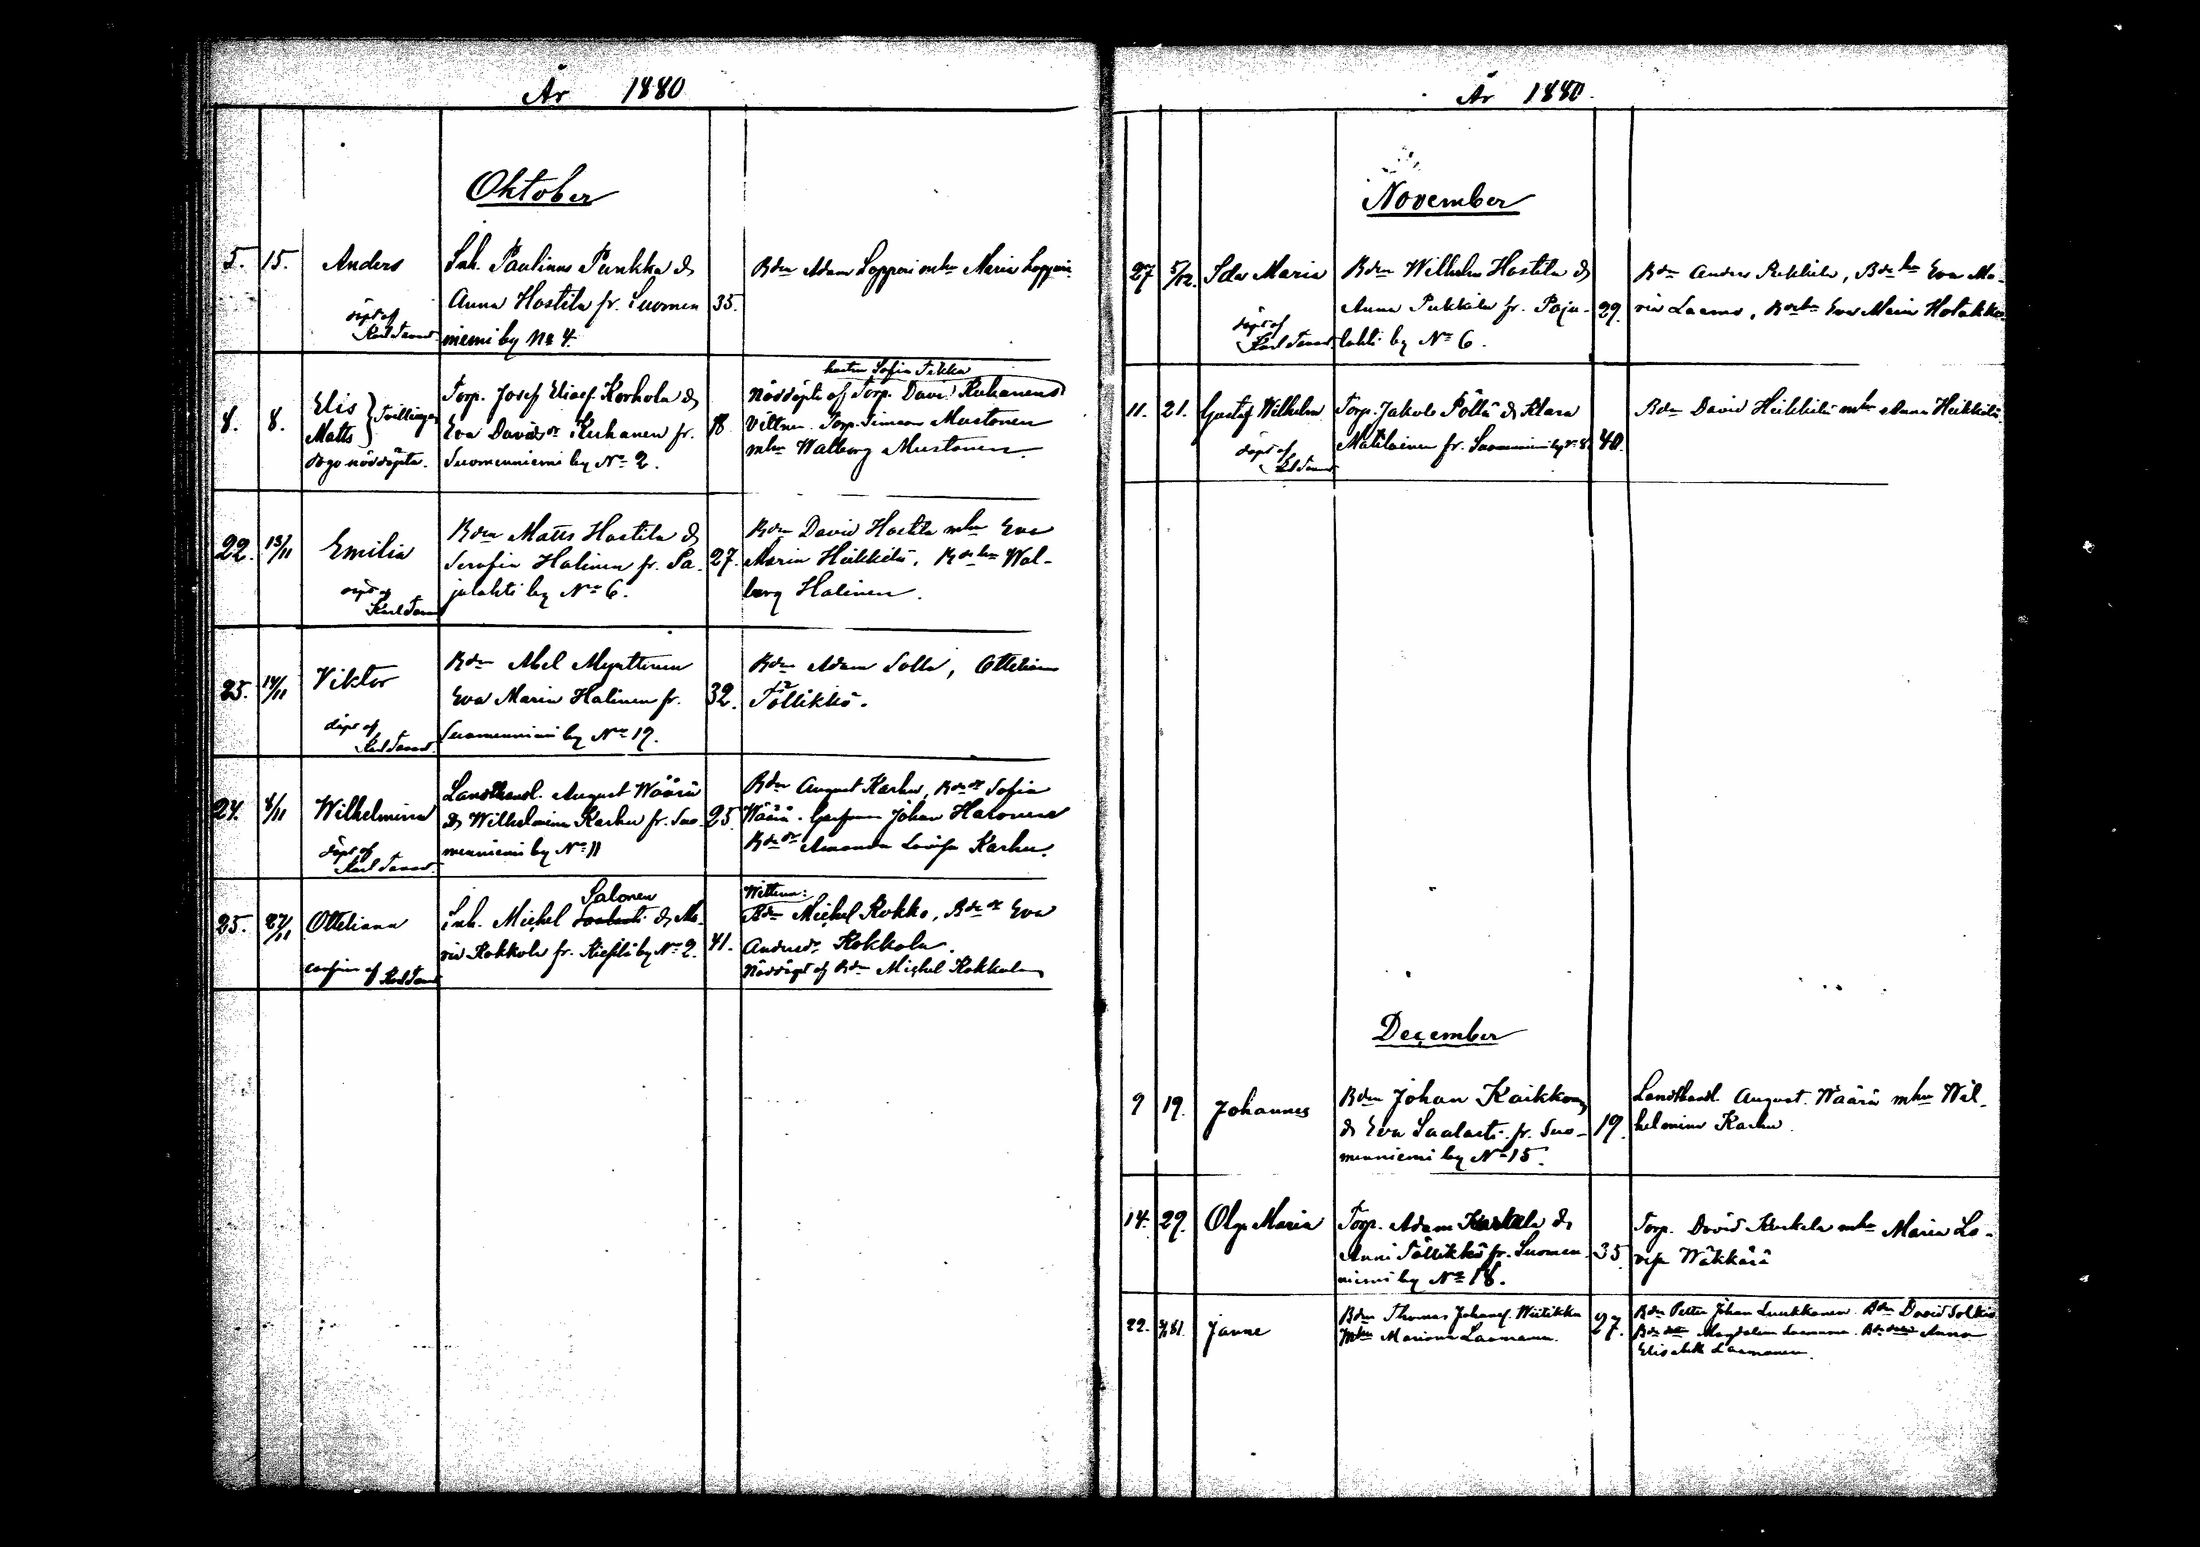 År 1880
Oktober
5. 15. Anders Inh. Paulinus Punkka &
Anna Hostila fr. Suomen 35.
döpt af
Karl Tavast niemi by No 4.
Bdn Adam Lopperi mhu Maria Lopperi
8. 8. Elis
Matts } Tvillingar
dogo nöddöpta.
Torp. Josef Eliasf. Korhola &
Eva Davidsdr Kuhanen fr. 18
Suomenniemi by No 2.
hustru Sofia Tikka
Nöddöpta af Torp. David Kuhanens
Vittnen. Torp. Simeon Mustonen
mhu Walborg Mustonen
22. 13/11 Emilia
döpt af
Karl Tavast
Bdn Matts Hostila &
Serafia Halinen fr. Pa- 27.
julahti by No 6.
Bdn David Hostila mhu Eva
Maria Heikkilä, Bdehu Wal-
borg Halinen.
25. 14/11 Viktor
döpt af
Karl Tavast.
Bdn Abel Mynttinen
Eva Maria Halinen fr. 32.
Suomenniemi by No 17.
Bdn Adam Solla, Otteliana
Töllikkö.
24. 8/11 Wilhelmina
döpt af
Karl Tavast.
Landthandl. August Wäärä
& Wilhelmina Karhu fr. Suo- 25
menniemi by No 11
Bdn August Karhu, Bdedr Sofia
Wäärä. Johan Halonen
Bdedr Amanda Lovisa Karhu.
25. 27/11 Otteliana
confirm. af Karl Tavast
Salonen
Inh. Michel & Ma-
ria Kokkola fr. Kiesilä by No 2. 41.
Wittnen:
Bdn Michel Kokko, Bdedr Eva
Andersdr Kokkola.
Nöddöpt af Bdn Michel Kokkola
År 1880.
November
27 5/12. Ida Maria
döpt af
Karl Tavast.
Bdn Wilhelm Hostila &
Anna Pukkila fr. Paju- 29.
lahti by No 6.
Bdn Anders Pukkila, Bdehu Eva Ma-
ria Laamo, Bdehu Eva Maria Hotakka
11. 21. Gustaf Wilhelm
döpt af
Karl Tavast
Torp. Jakob Pöllä & Klara
Matilainen fr. Suomenniemi by No 8. 40.
Bdn David Heikkilä mhu Anna Heikkilä
December
9 19. Johannes
Bdn Johan Kaikkonen
& Eva Saalasti fr. Suo- 19.
menniemi by No 15.
Landthandl. August Wäärä mhu Wil-
helmina Karhu.
14. 29. Olga Maria
Torp. Adam Kuukela &
Anni Töllikkö fr. Suomen- 35
niemi by No 18.
Torp. David Kuukela mhu Maria Lo-
visa Wäkkärä
22. Janne
Bdn Thomas Johansf. Wiitikka
mhu Mariana Laamanen. 27.
Bdn Petter Johan Luukkonen. Bdn David Solkio
Magdalena Laamanen. Anna
Elisabeth Laamanen.